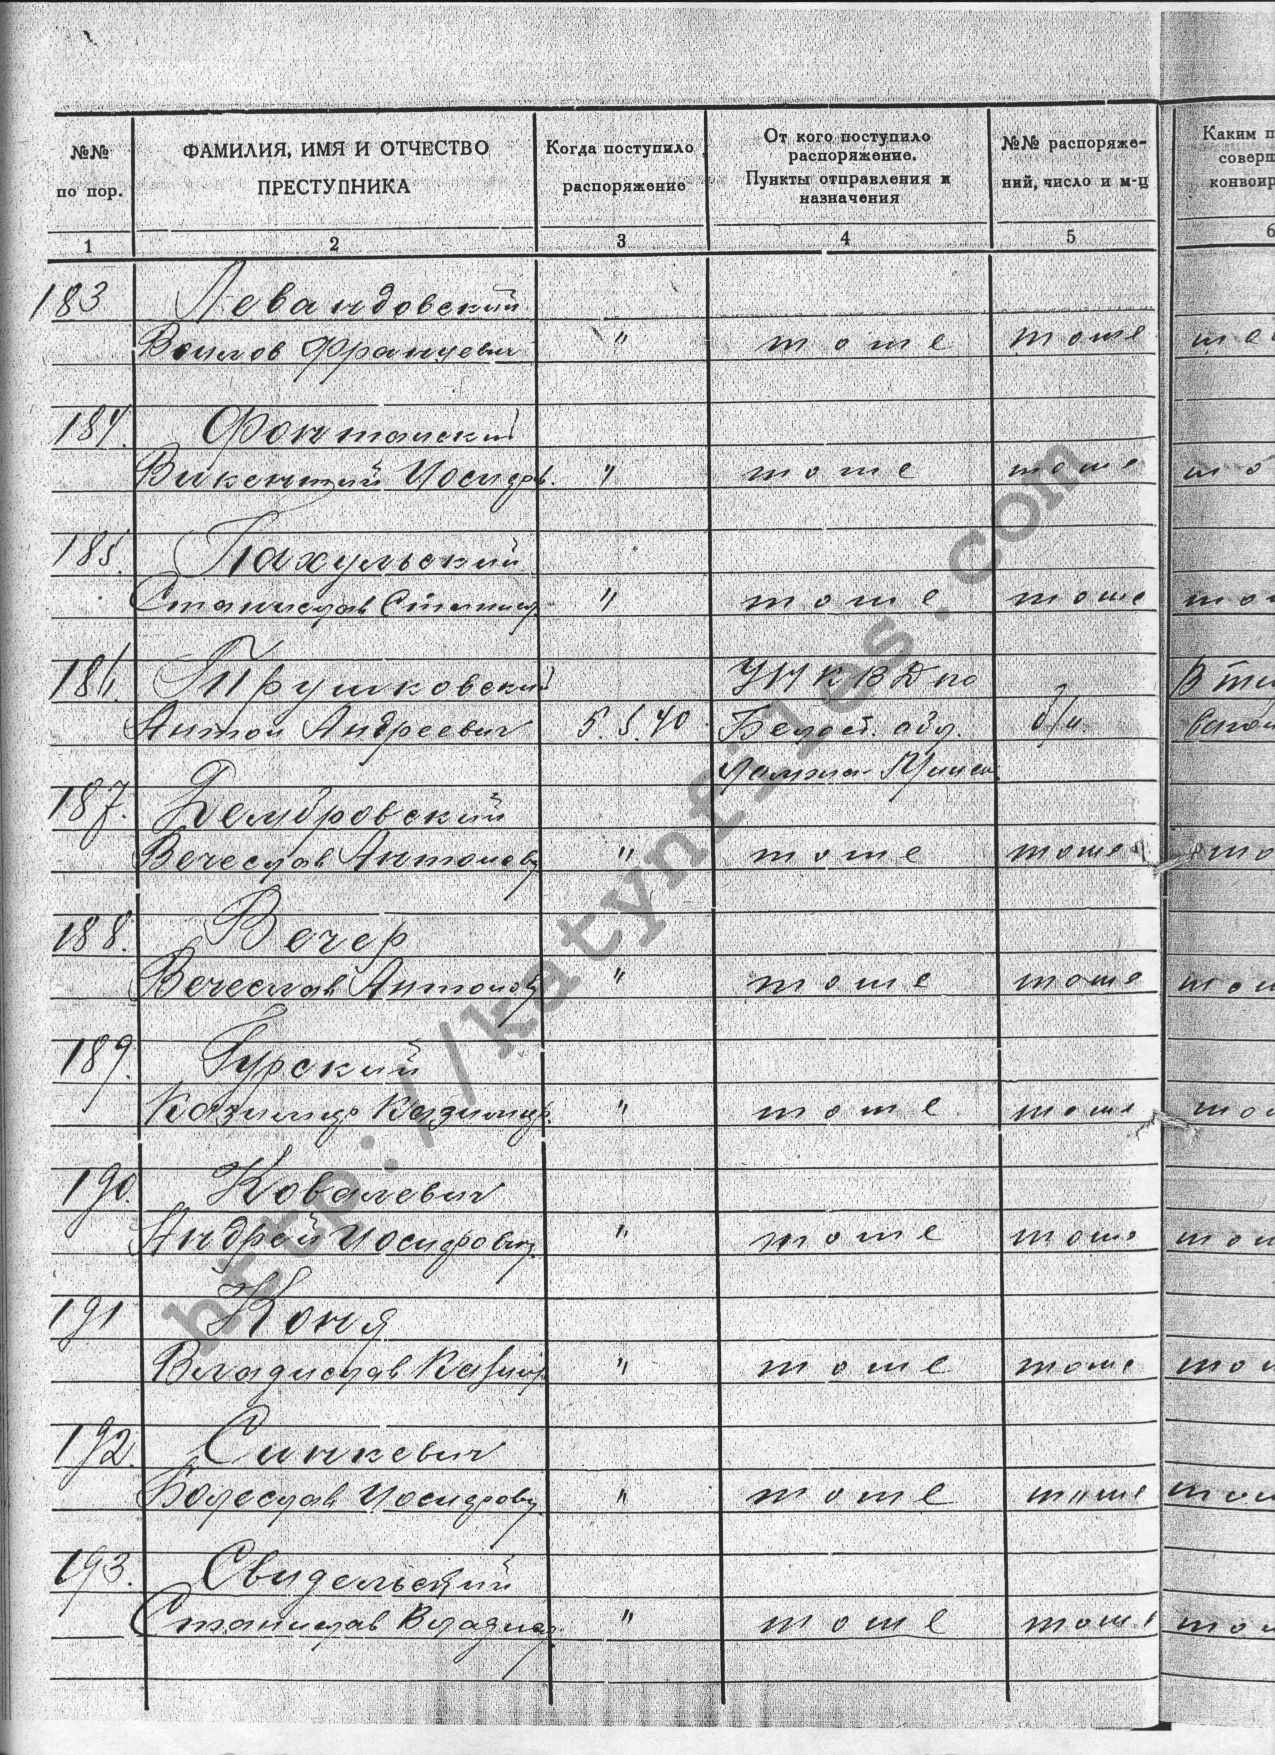 №№ по пор.
ФАМИЛИЯ, ИМЯ И ОТЧЕСТВО ПРЕСТУПНИКА
Когда поступило распоряжение
От кого поступило распоряжение. Пункты отправления и назначения
№№ распоряже-ний, число и м-ц
Каким п
соверш
конвоир
1 2 3 4 5 6
183 Левандовский
Францевич " тоже тоже
184. Фонтанский
Викентий Иосифов. " тоже тоже то
185. Пахульский
Станислав Станисл. " тоже тоже
186. УНКВД по
Антон Андреевич 5.5.40 Белост. обл. б/н.
Ломжа-Минск
187. Домбровский
Вечеслав Антонов " тоже тоже то
188. Вечер
Вечеслав Антонов " тоже тоже
189. Гурский
Казимир Казимир. " тоже тоже
190. Ковалевич
Андрей Иосифович " тоже тоже
191 Коня
Владислав Казимир " тоже тоже
192. Синкевич
Болеслав Иосифов " тоже тоже
193. Свидельский
Станислав Владисл. " тоже тоже
http://katynfiles.com